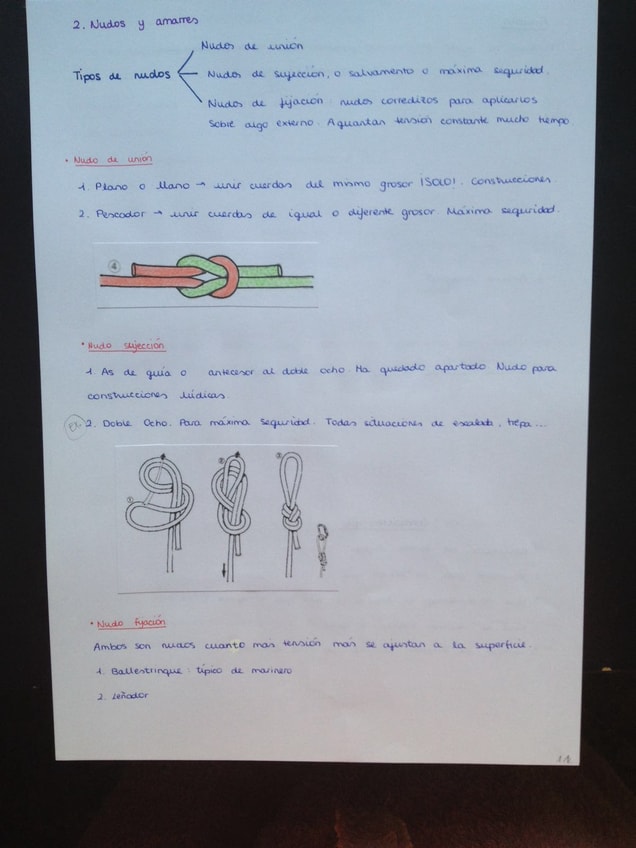 2. Nudos y amarres
Nudos de unión
Tipos de nudos
Nudos de sujección, o salvamento o máxima seguridad.
Nudos de fijación: nudos corredizos para aplicarlos
sobre algo externo. Aguantan tensión constante mucho tiempo
• Nudo de unión
1. Plano o llano → unir cuerdas del mismo grosor ¡SOLO!. Construcciones.
2. Pescador → unir cuerdas de igual o diferente grosor. Máxima seguridad.
4
• Nudo sujección
1. As de guía o antecesor al doble ocho. Ha quedado apartado. Nudo para
construcciones lúdicas.
2. Doble Ocho. Para máxima seguridad. Todas situaciones de escalada, trepa...
1 2 3
• Nudo fijación
Ambos son nudos cuanto más tensión más se ajustan a la superficie.
1. Ballestrinque: típico de marinero
2. Leñador